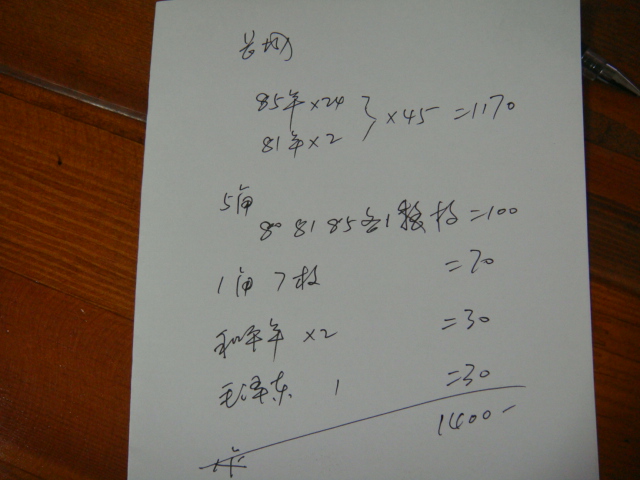 长城
85年×24 } ×45 =1170
81年×2
5角
80 81 85各1枚 =100
1角 7枚 =70
和平年 ×2 =30
毛泽东 1 =30
1400-